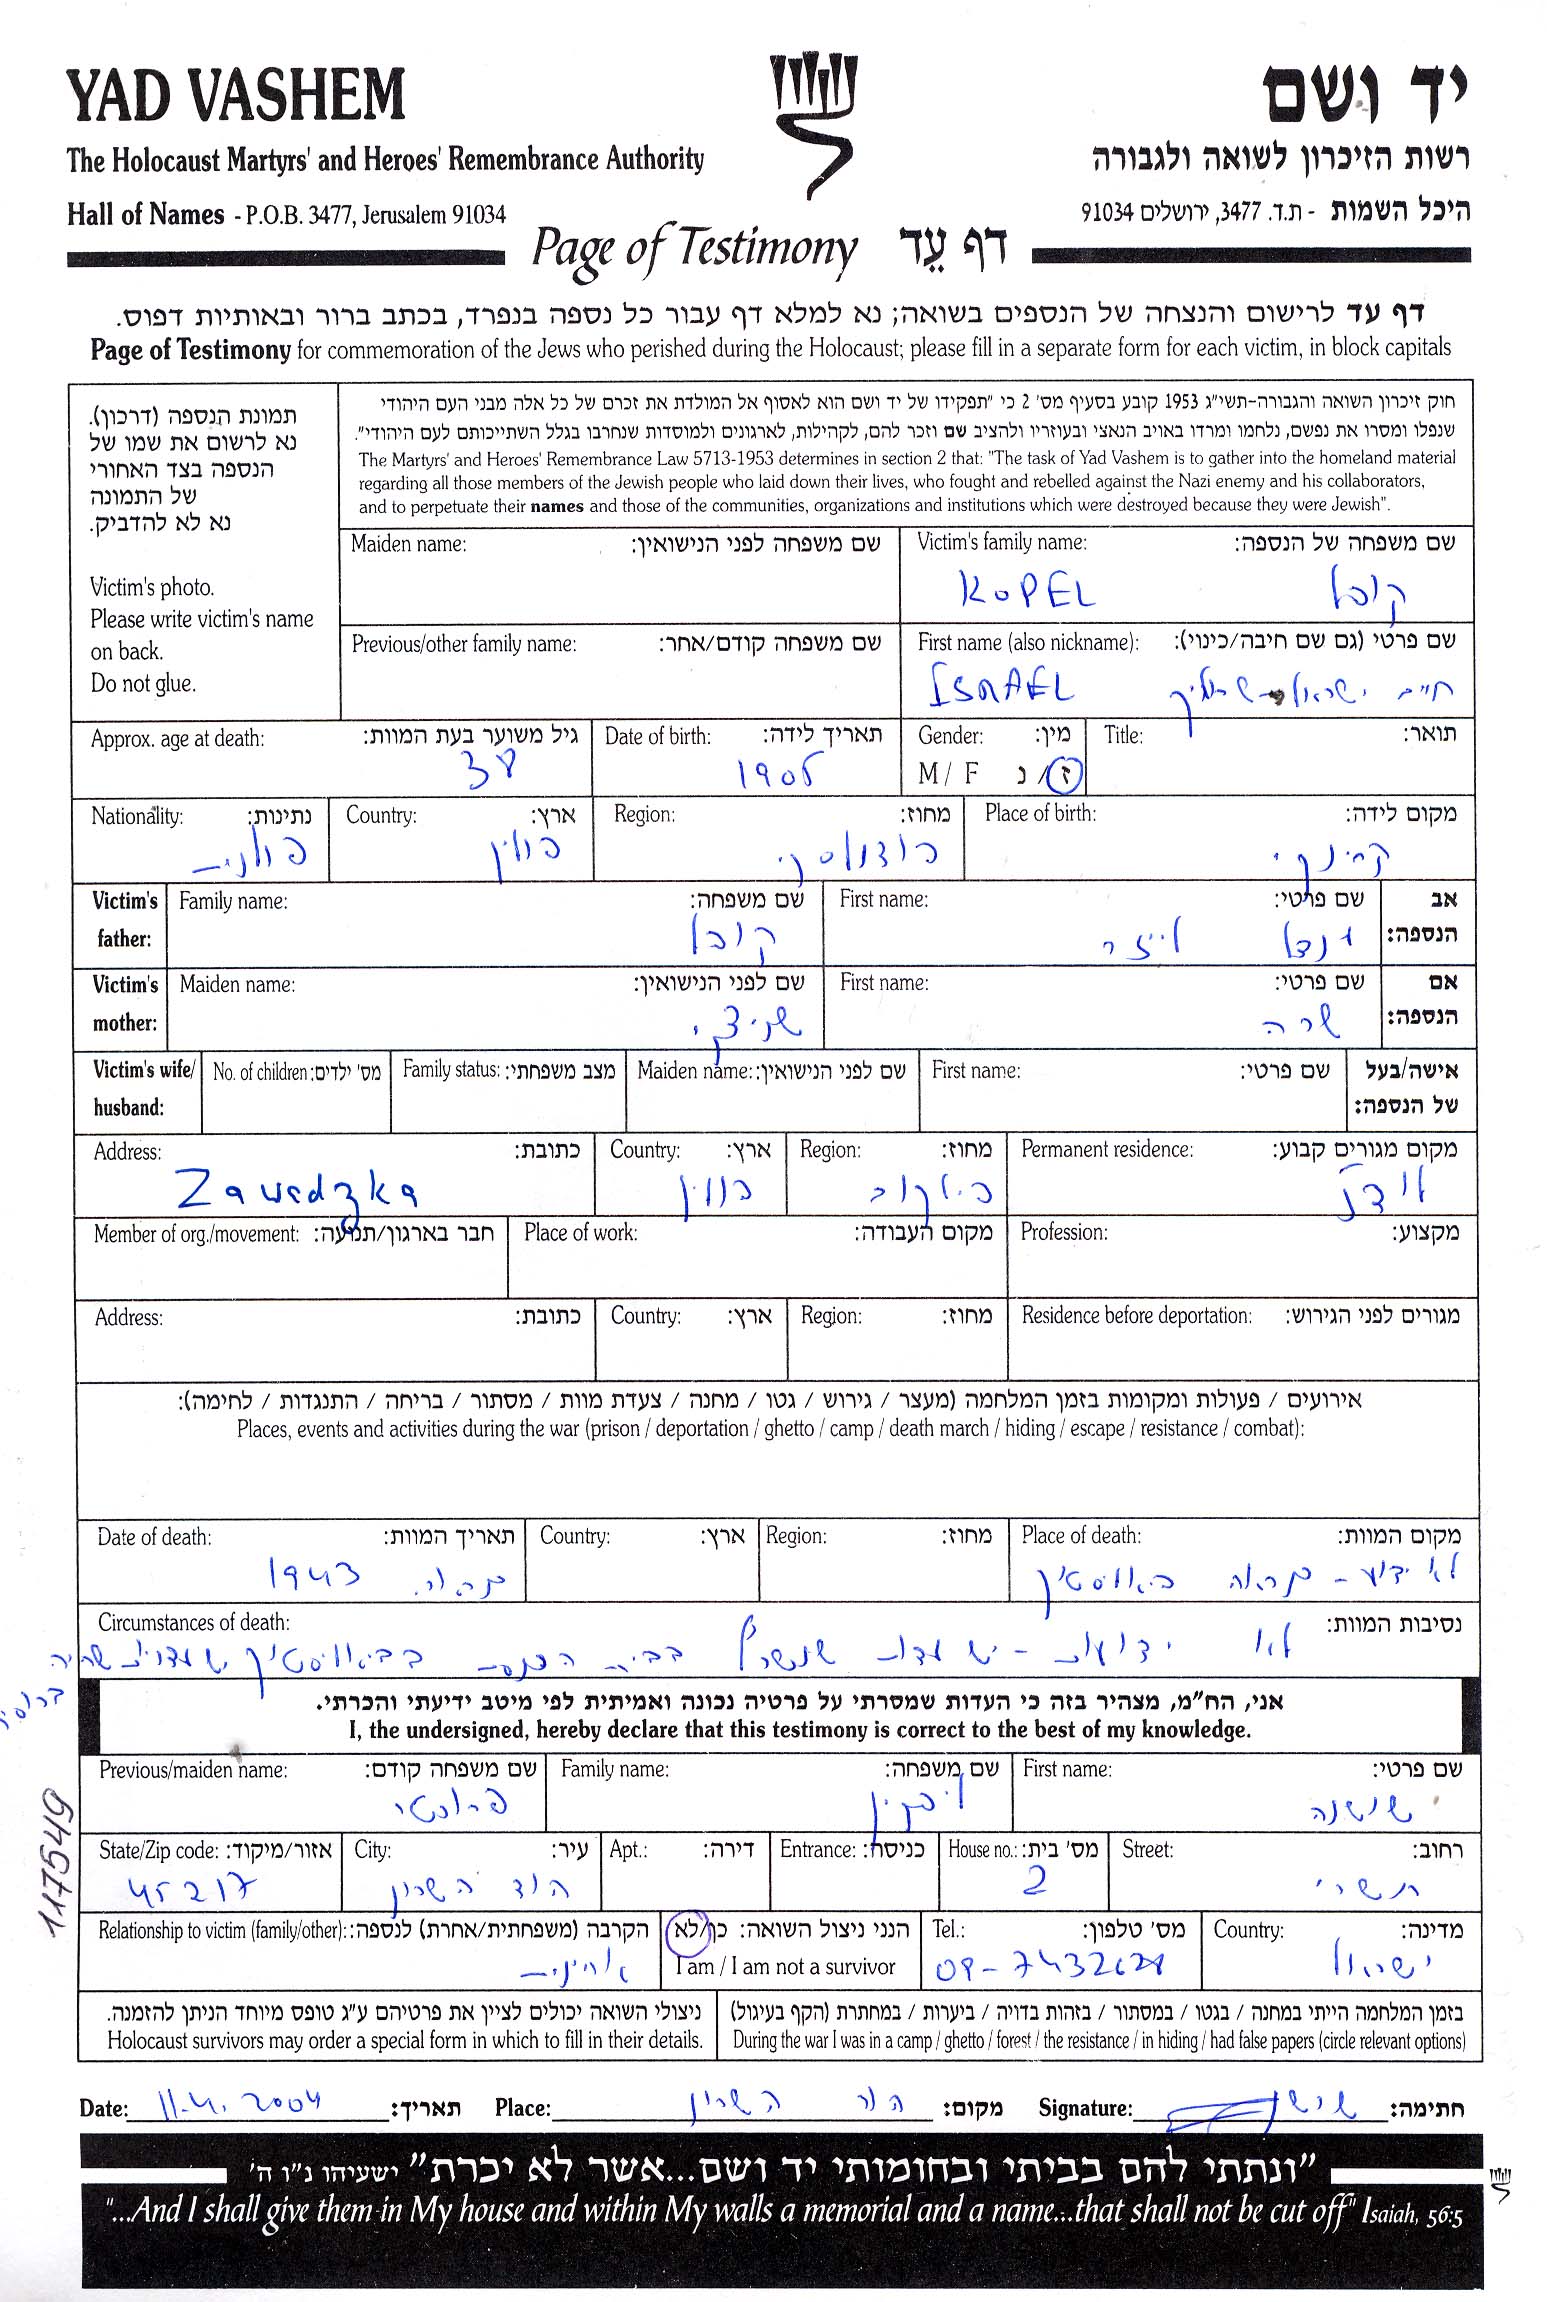 YAD VASHEM
יד ושם
The Holocaust Martyrs' and Heroes' Remembrance Authority
רשות הזיכרון לשואה ולגבורה
Hall of Names - P.O.B. 3477, Jerusalem 91034
היכל השמות - ת.ד. 3477, ירושלים 91034
Page of Testimony דף עֵד
דף עד לרישום והנצחה של הנספים בשואה; נא למלא דף עבור כל נספה בנפרד, בכתב ברור ובאותיות דפוס.
Page of Testimony for commemoration of the Jews who perished during the Holocaust; please fill in a separate form for each victim, in block capitals
תמונת הנספה (דרכון).
נא לרשום את שמו של
הנספה בצד האחורי
של התמונה
נא לא להדביק.
Victim's photo.
Please write victim's name
on back.
Do not glue.
חוק זיכרון השואה והגבורה-תשי״ג 1953 קובע בסעיף מס' 2 כי ״תפקידו של יד ושם הוא לאסוף אל המולדת את זכרם של כל אלה מבני העם היהודי
שנפלו ומסרו את נפשם, נלחמו ומרדו באויב הנאצי ובעוזריו ולהציב שם וזכר להם, לקהילות, לארגונים ולמוסדות שנחרבו בגלל השתייכותם לעם היהודי״.
The Martyrs' and Heroes' Remembrance Law 5713-1953 determines in section 2 that: "The task of Yad Vashem is to gather into the homeland material
regarding all those members of the Jewish people who laid down their lives, who fought and rebelled against the Nazi enemy and his collaborators,
and to perpetuate their names and those of the communities, organizations and institutions which were destroyed because they were Jewish".
Victim's family name: שם משפחה של הנספה:
KOPEL קופל
Maiden name: שם משפחה לפני הנישואין:
First name (also nickname): שם פרטי (גם שם חיבה/כינוי):
ISRAEL חיים ישראל
Previous/other family name: שם משפחה קודם/אחר:
Title: תואר:
Gender: מין:
M / F ז / נ
Date of birth: תאריך לידה:
1905
Approx. age at death: גיל משוער בעת המוות:
38
Place of birth: מקום לידה:
קרינקי
Region: מחוז:
Country: ארץ:
פולין
Nationality: נתינות:
פולנית
Victim's father: אב הנספה:
First name: שם פרטי:
Family name: שם משפחה:
קופל
Victim's mother: אם הנספה:
First name: שם פרטי:
שרה
Maiden name: שם לפני הנישואין:
Victim's wife/ husband: אישה/בעל של הנספה:
First name: שם פרטי:
Maiden name: שם לפני הנישואין:
Family status: מצב משפחתי:
No. of children: מס' ילדים:
Permanent residence: מקום מגורים קבוע:
לודז'
Region: מחוז:
Country: ארץ:
פולין
Address: כתובת:
Zawedzka
Profession: מקצוע:
Place of work: מקום העבודה:
Member of org./movement: חבר בארגון/תנועה:
Residence before deportation: מגורים לפני הגירוש:
Region: מחוז:
Country: ארץ:
Address: כתובת:
אירועים / פעולות ומקומות בזמן המלחמה (מעצר / גירוש / גטו / מחנה / צעדת מוות / מסתור / בריחה / התנגדות / לחימה):
Places, events and activities during the war (prison / deportation / ghetto / camp / death march / hiding / escape / resistance / combat):
Place of death: מקום המוות:
לא ידוע - כנראה ביאליסטוק
Region: מחוז:
Country: ארץ:
Date of death: תאריך המוות:
כנראה 1943
Circumstances of death: נסיבות המוות:
לא ידועות - יש עדות שנשרף בבית הכנסת בביאליסטוק
אני, הח״מ, מצהיר בזה כי העדות שמסרתי על פרטיה נכונה ואמיתית לפי מיטב ידיעתי והכרתי.
I, the undersigned, hereby declare that this testimony is correct to the best of my knowledge.
First name: שם פרטי:
שושנה
Family name: שם משפחה:
ליפקין
Previous/maiden name: שם משפחה קודם:
Street: רחוב:
תשרי
House no.: מס' בית:
2
Entrance: כניסה:
Apt.: דירה:
City: עיר:
הוד השרון
State/Zip code: אזור/מיקוד:
45217
Country: מדינה:
ישראל
Tel.: מס' טלפון:
הנני ניצול השואה: כן/לא
I am / I am not a survivor
Relationship to victim (family/other): הקרבה (משפחתית/אחרת) לנספה:
אחינית
בזמן המלחמה הייתי במחנה / בגטו / במסתור / בזהות בדויה / ביערות / במחתרת (הקף בעיגול)
During the war I was in a camp / ghetto / forest / the resistance / in hiding / had false papers (circle relevant options)
ניצולי השואה יכולים לציין את פרטיהם ע״ג טופס מיוחד הניתן להזמנה.
Holocaust survivors may order a special form in which to fill in their details.
1175549
Date: 11.4.2004 תאריך: Place: הוד השרון מקום: Signature: חתימה:
״ונתתי להם בביתי ובחומותי יד ושם...אשר לא יכרת״ ישעיהו נ״ו ה'
"...And I shall give them in My house and within My walls a memorial and a name...that shall not be cut off" Isaiah, 56:5